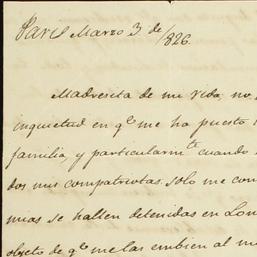 Paris Marzo 3 de /826.
Madresita de mi vida, no
inquietud en qe. me ha puesto
familia, y particularmte. cuando
dos mis compatriotas. Solo me con
mias se hallen detenidas en Lon
objeto de qe. me las embien al m